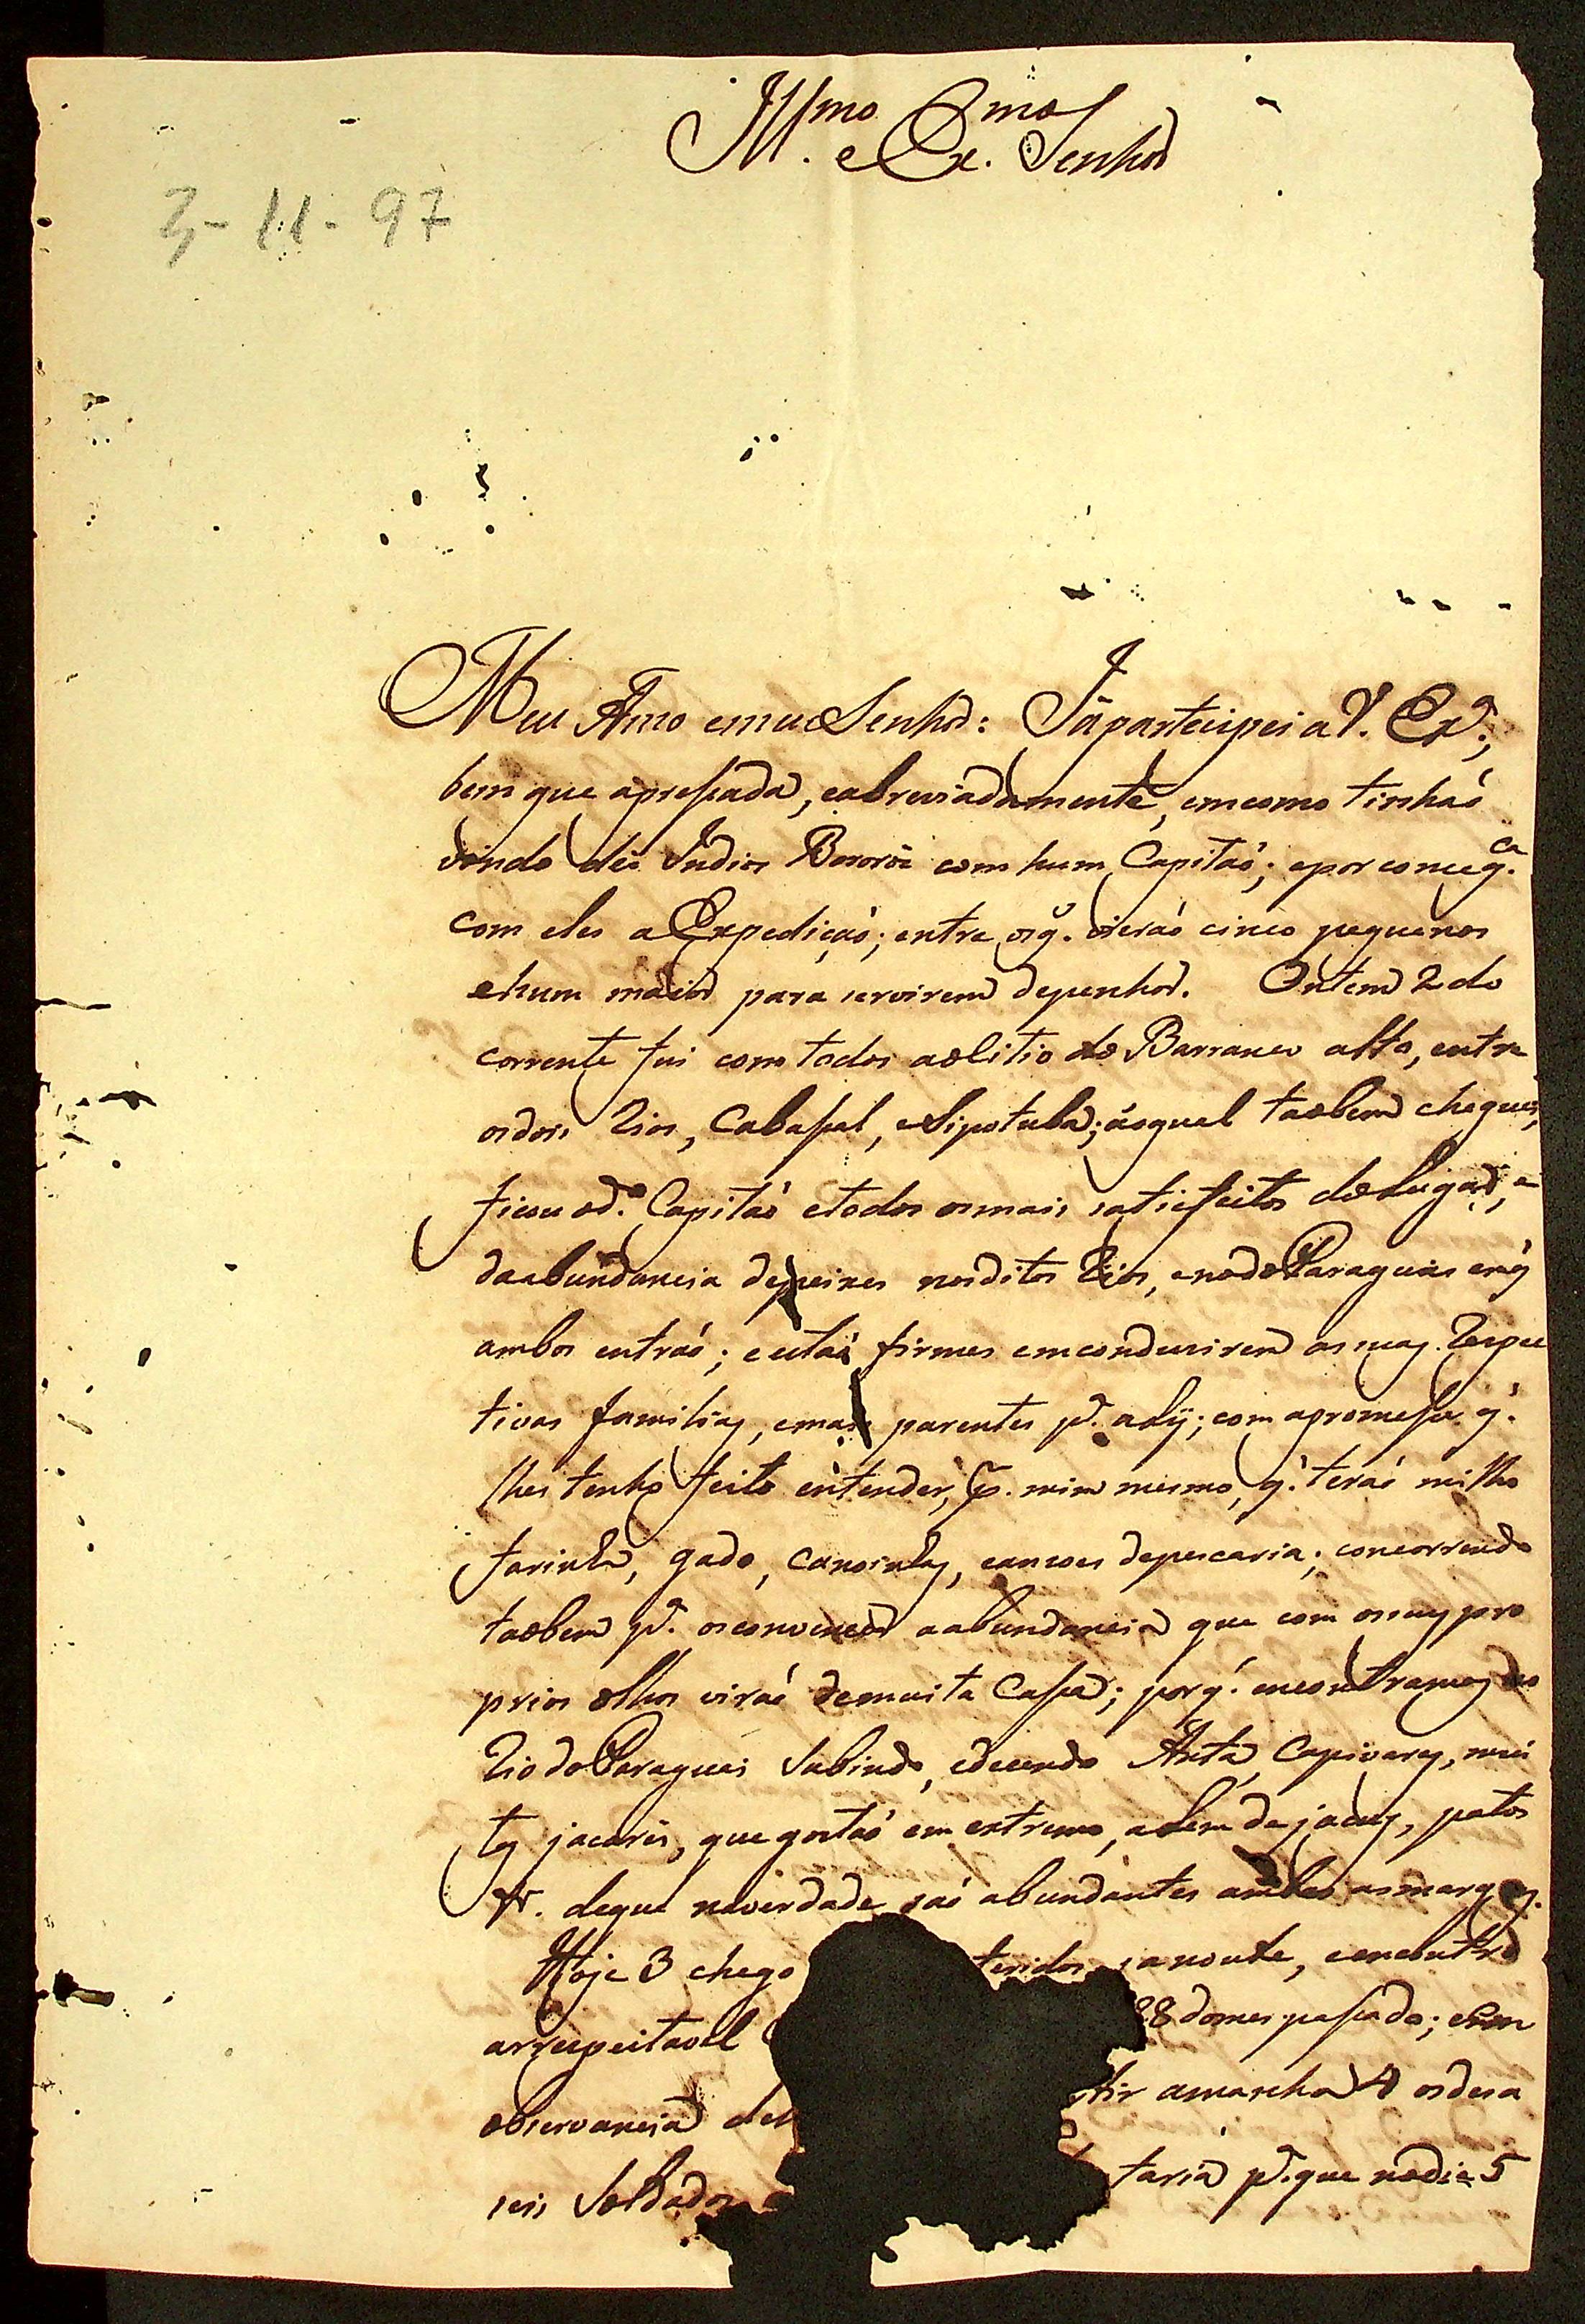 Ill.mo e Ex.mo Senhor
3-11-97
Meu Amo e meu Senhor: Já partecipei a V. Ex.a,
bem que apressada, e abreviadamente, em como tinhaó
vindo Indios Bororós com hum Capitaó; e por conseq.ca
com eles a Expediçaó; entre os q. vieraó cinco pequenos
e hum maior para servirem de penhor. Ontem 2 do
corrente fui com todos ao Sitio do Barranco alto, entre
os dois Rios, Cabassal, e Sipotuba; ao qual taobem cheguei,
ficou o d.o Capitaó e todos os mais satisfeitos do Lugar, e
da abundancia de peixes nos ditos Rios, e no do Paraguai em q
ambos entraó; e estaó firmes em conduzirem as suas respec
tivas familias, e mais parentes p.a aly; com a promessa q.
lhes tenho feito entender, p. mim mesmo, q. teraó milho
farinha, gado, canoinhas, e anzoes de pescaria; concorrendo
taobem p.a os convencer a abundancia que com os seus pro
prios olhos viraó de muita Cassa; porq. encontramos no
Rio do Paraguai Subindo, e decendo Anta, Capivaras, mui
tos jacarés, que gostaó em extremo, alem de jacus, patos
&. de que na verdade saó abundantes ambas as margens.
Hoje 3 chego teridos ja noute, e encontro
a respeitavel 28 do mes passado; e em
observancia de tir amanhã 4 os desa
seis Soldados taria p.a que no dia 5